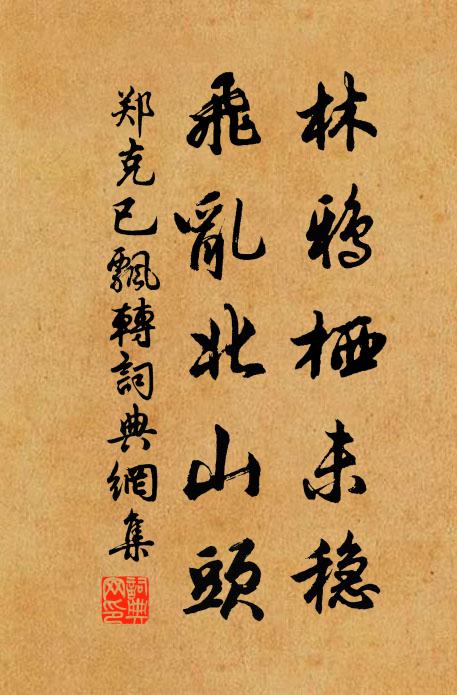 林鸦栖未稳
飛亂北山頭
郑克已飄轉詞典網集
詞典网印